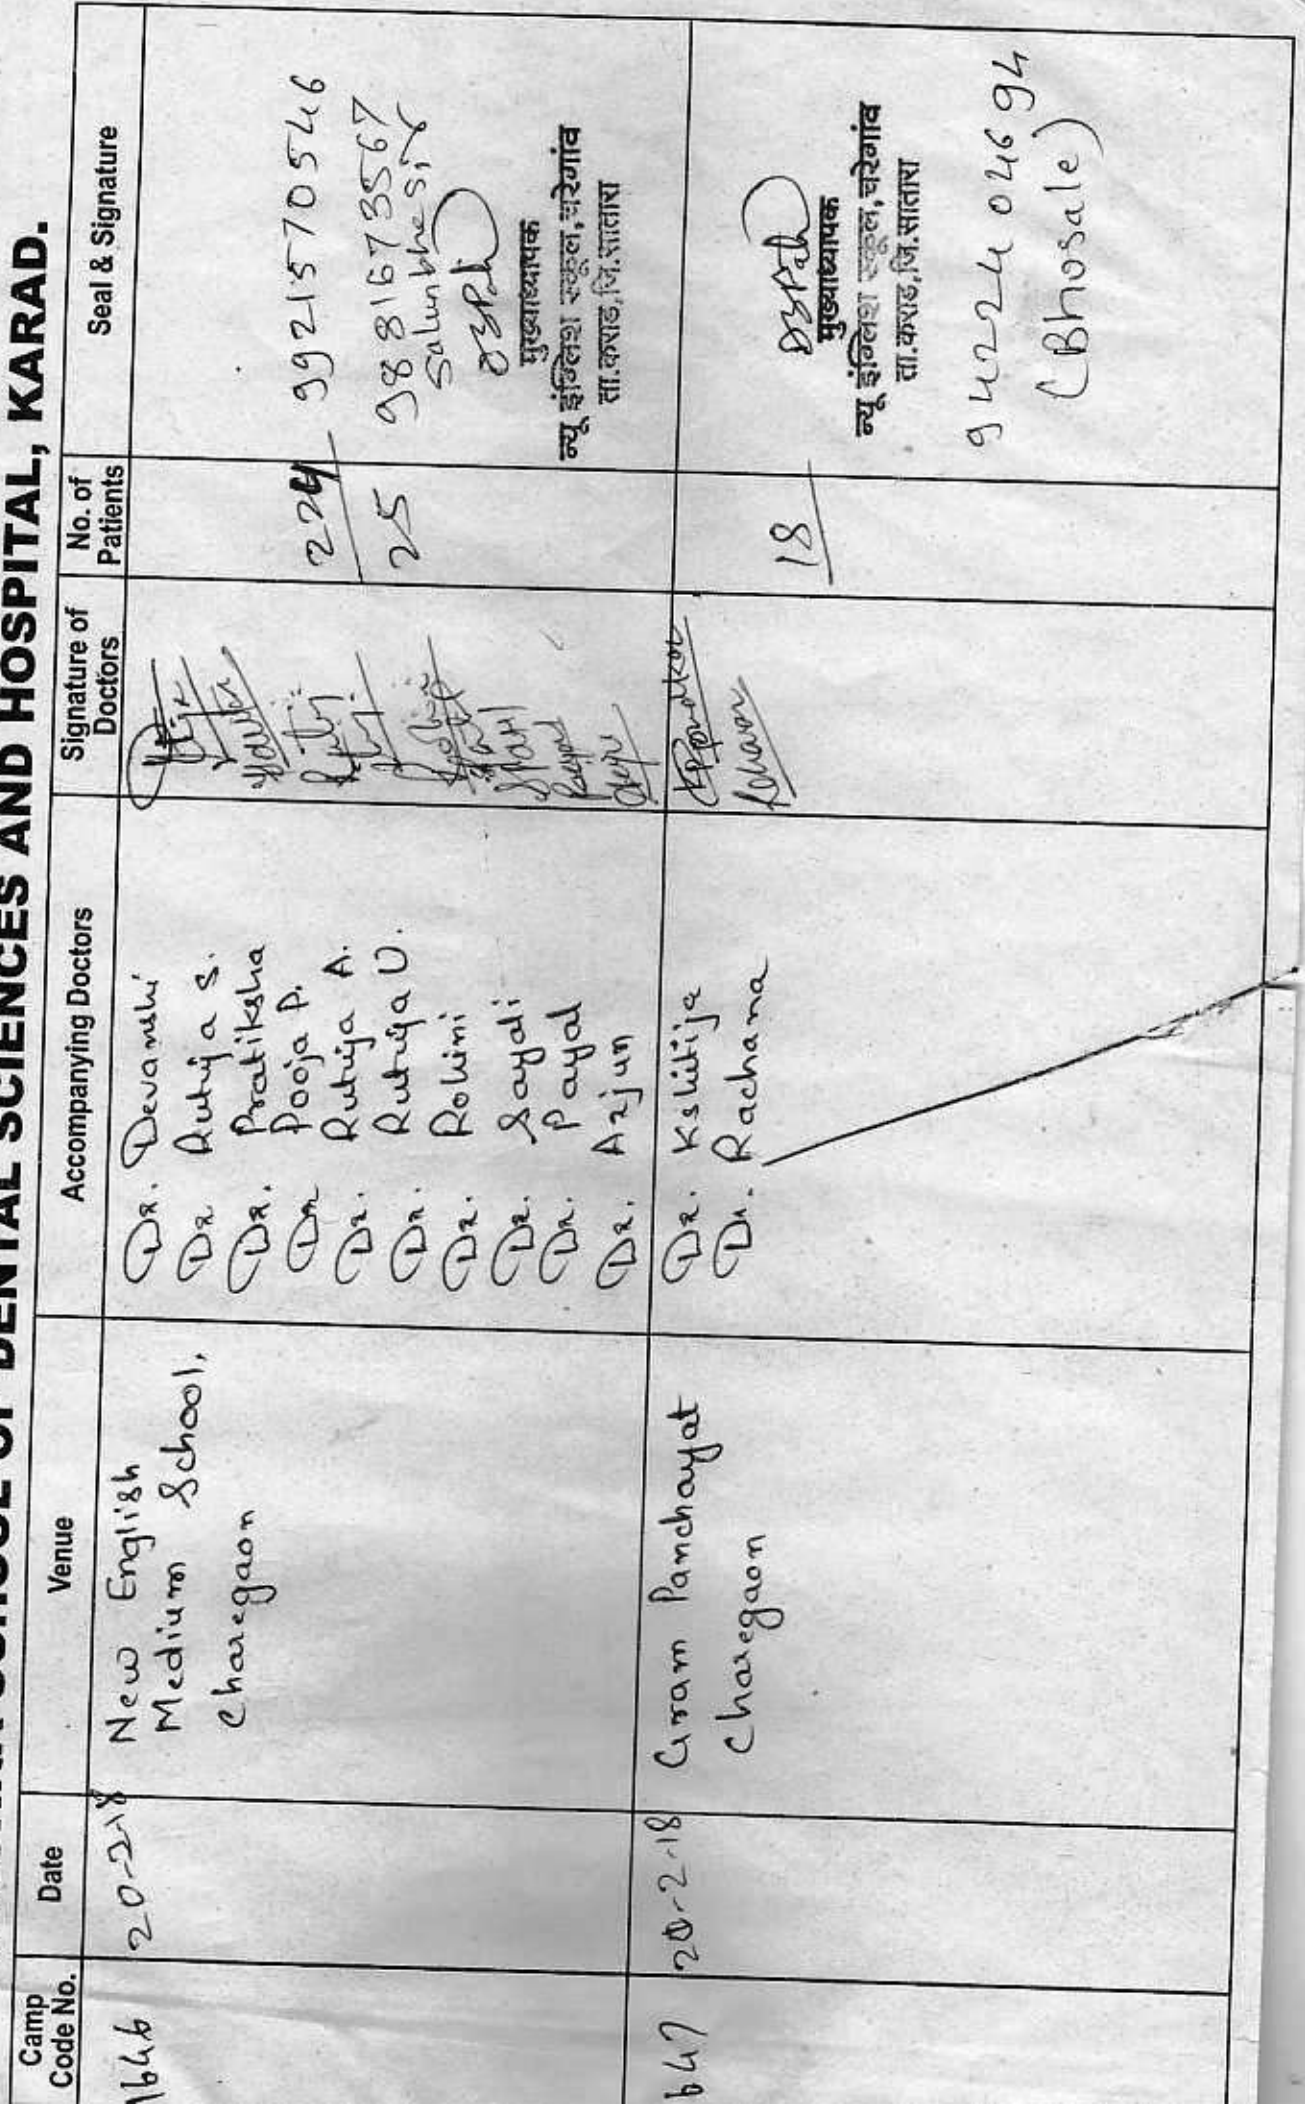 SCHOOL OF DENTAL SCIENCES AND HOSPITAL, KARAD.
Camp Code No.
Date
Venue
Accompanying Doctors
Signature of Doctors
No. of Patients
Seal & Signature
1646
20-2-18
New English
Medium School,
Charegaon
Dr. Devanshi
Dr Rutuja S.
Dr. Pratiksha
Dr Pooja P.
Dr. Rutuja A.
Dr. Rutuja U.
Dr. Rohini
Dr. Sayali
Dr. Payal
Dr. Arjun
224
25
9921570546
9881673567
Salunkhe Sir
मुख्याध्यापक
न्यू इंग्लिश स्कूल, चरेगांव
ता.कराड, जि.सातारा
647
20-2-18
Gram Panchayat
Charegaon
Dr. Kshitija
Dr. Rachana
18
मुख्याध्यापक
न्यू इंग्लिश स्कूल, चरेगांव
ता.कराड, जि.सातारा
9422404694
(Bhosale)